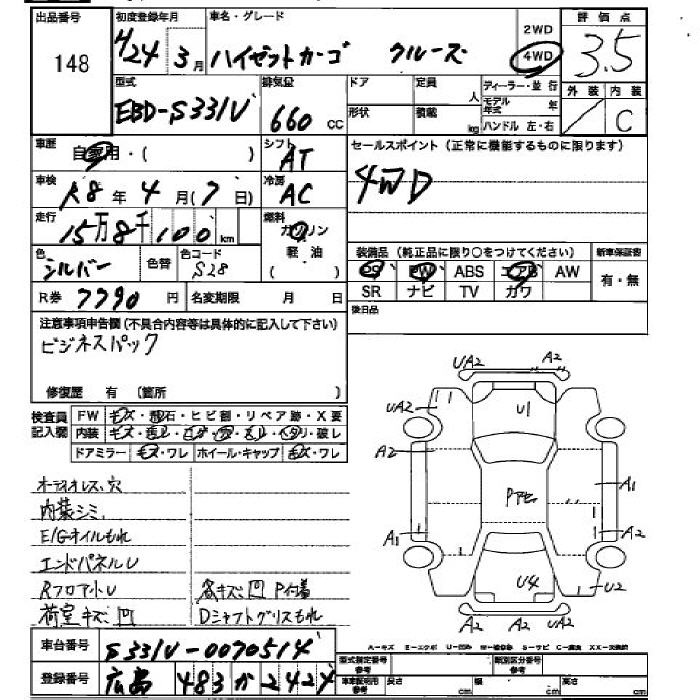 出品番号 初度登録年月 車名・グレード 2WD 評価点
148 H24 3月 ハイゼットカーゴ クルーズ 4WD 3.5
型式 排気量 ドア 定員 人 ディーラー・並行 外装 内装
EBD-S331V 660 cc 形状 積載 kg モデル年式 年 ハンドル 左・右 / C
車歴 自家用・( ) シフト AT セールスポイント(正常に機能するものに限ります)
車検 R8年4月(7日) 冷房 AC 4WD
走行 15万8千100km 燃料 ガソリン 軽油 ( )
色 シルバー 色替 色コード S28
装備品(純正品に限り○をつけてください) 新車保証書
PS PW ABS エアB AW 有・無
SR ナビ TV カワ
R券 7790円 名変期限 月 日 後日品
注意事項申告欄(不具合内容等は具体的に記入して下さい)
ビジネスパック
修復歴 有 (箇所 )
検査員記入欄 FW キズ・飛石・ヒビ割・リペア跡・X要
内装 キズ・
ドアミラー キズ・ワレ ホイール・キャップ キズ・ワレ
UA2 A2
UA2 U1
A2
Pアセ A1
A1 A2
U4 U2
A2 A2 A2
オーディオレス、穴
内装シミ
E/Gオイルもれ
エンドパネルU
RフロアトU
各キズ凹 P付着
荷室キズ凹 Dシャフトグリスもれ
車台番号 S331V-0070514
A-キズ E-エクボ U-凹み W-補修跡 S-サビ C-腐食 XX-交換済
登録番号 広島 483 か 2424
型式指定番号参考 類別区分番号参考
車車証明用参考 長さ cm 幅 cm 高さ cm